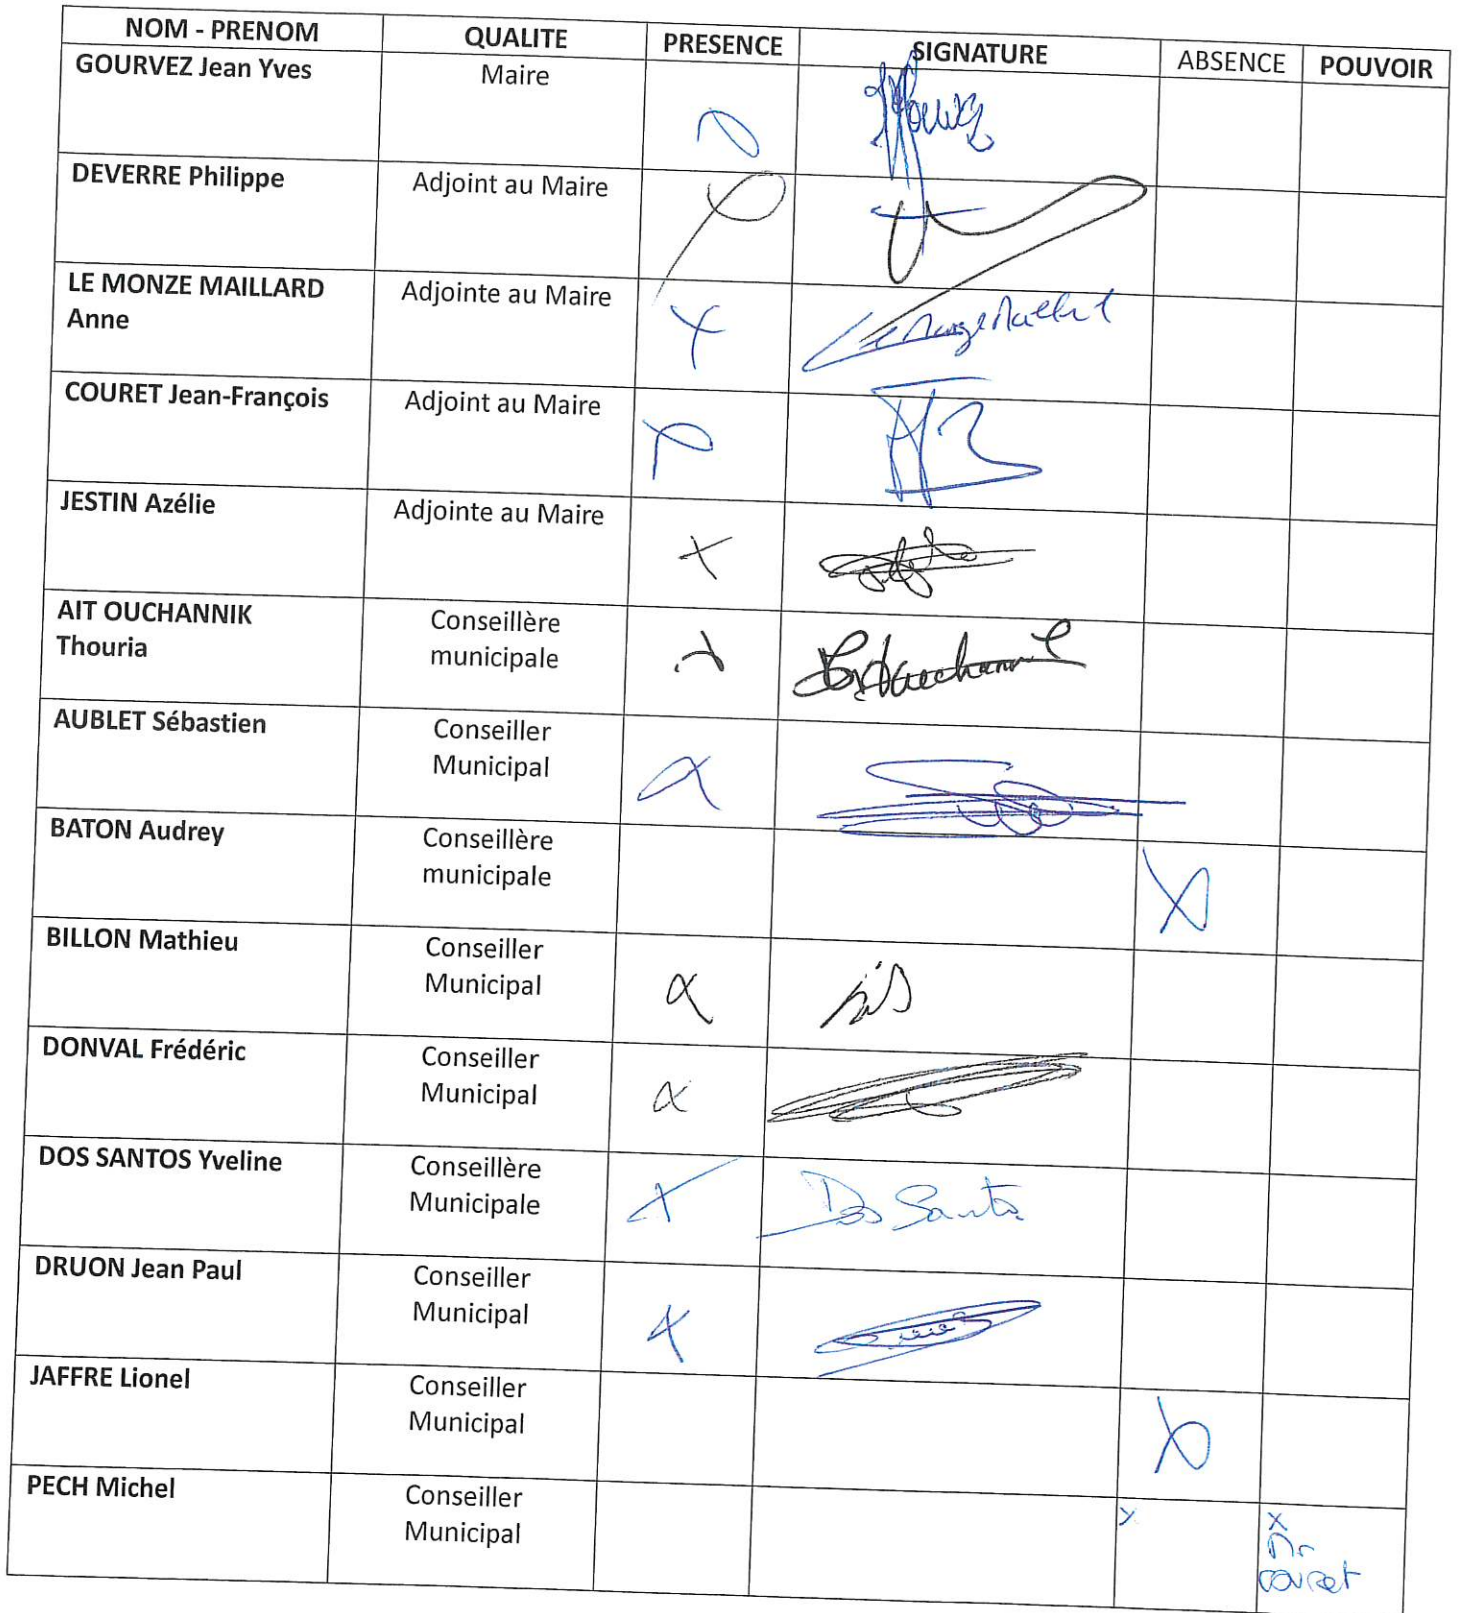 NOM - PRENOM QUALITE PRESENCE SIGNATURE ABSENCE POUVOIR
GOURVEZ Jean Yves Maire
DEVERRE Philippe Adjoint au Maire
LE MONZE MAILLARD Adjointe au Maire
Anne
COURET Jean-François Adjoint au Maire
JESTIN Azélie Adjointe au Maire
AIT OUCHANNIK Conseillère
Thouria municipale
AUBLET Sébastien Conseiller
Municipal
BATON Audrey Conseillère X
municipale
BILLON Mathieu Conseiller
Municipal
DONVAL Frédéric Conseiller
Municipal
DOS SANTOS Yveline Conseillère
Municipale X Dos Santos
DRUON Jean Paul Conseiller
Municipal
JAFFRE Lionel Conseiller X
Municipal
PECH Michel Conseiller x x
Municipal Mr
couret